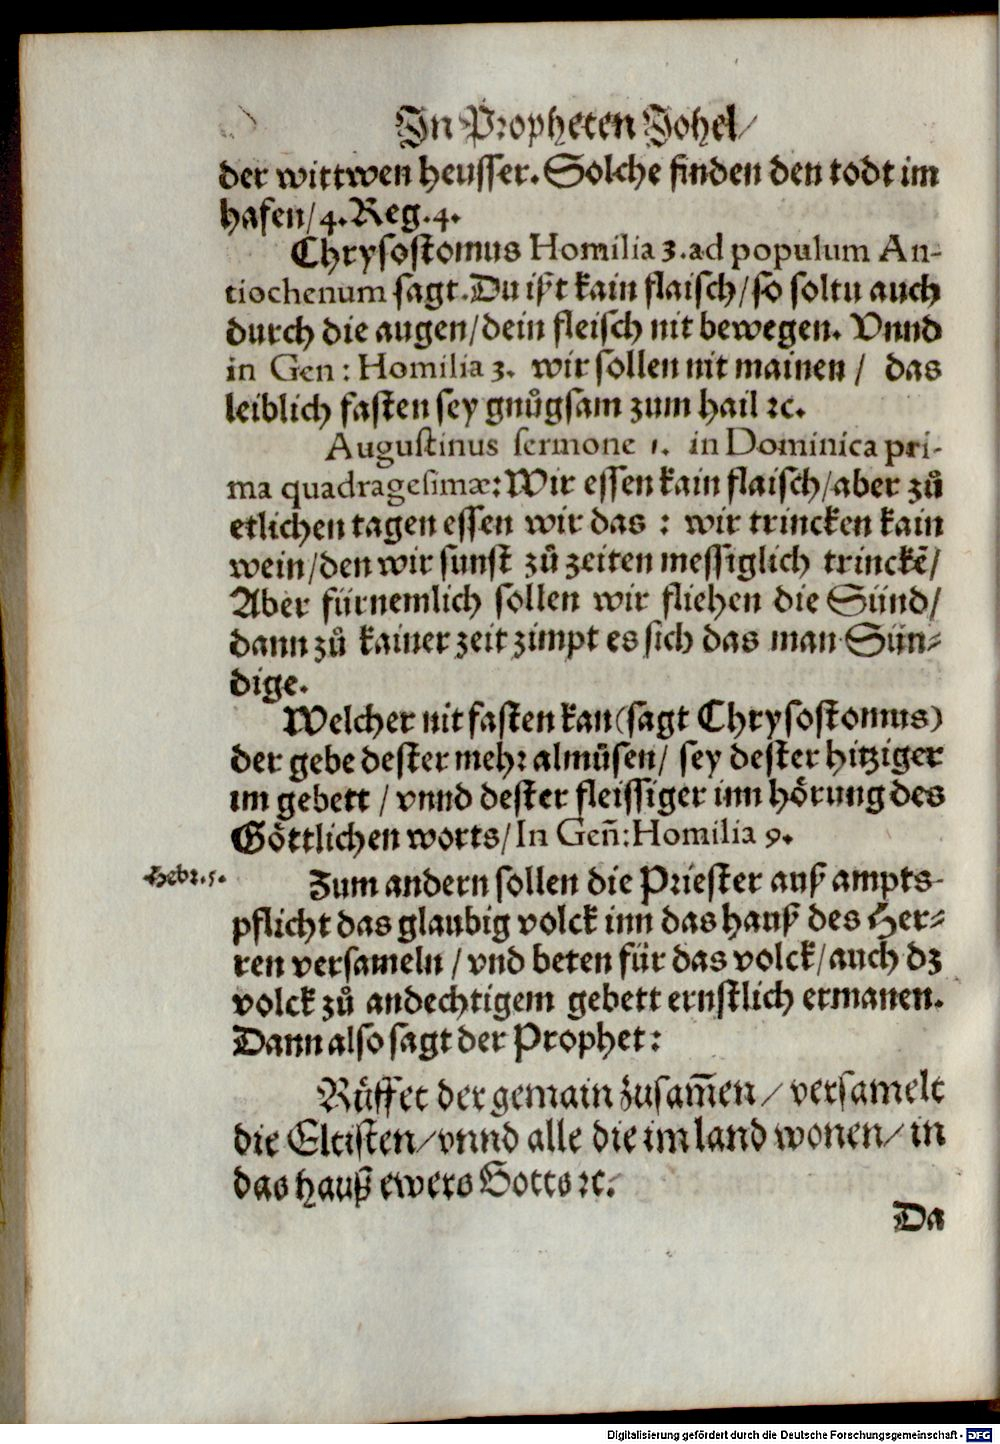 In Propheten Johel/
der wittwen heusser. Solche finden den todt im
hafen/ 4. Reg. 4.
Chrysostomus Homilia 3. ad populum An-
tiochenum sagt. Du ißt kain flaisch/ so soltu auch
durch die augen/ dein fleisch nit bewegen. Vnnd
in Gen: Homilia 3. wir sollen nit mainen/ das
leiblich fasten sey gnůgsam zum hail ꝛc.
Augustinus sermone 1. in Dominica pri-
ma quadragesimæ: Wir essen kain flaisch/ aber zů
etlichen tagen essen wir das: wir trincken kain
wein/ den wir sunst zů zeiten messiglich trinckẽ/
Aber fürnemlich sollen wir fliehen die Sünd/
dann zů kainer zeit zimpt es sich das man Sün-
dige.
Welcher nit fasten kan (sagt Chrysostomus)
der gebe dester mehr almůsen/ sey dester hitziger
im gebett/ vnnd dester fleissiger inn hörung des
Göttlichen worts/ In Geñ: Homilia 9.
Hebr. 5.
Zum andern sollen die Priester auß ampts-
pflicht das glaubig volck inn das hauß des Her-
ren versameln/ vnd beten für das volck/ auch dz
volck zů andechtigem gebett ernstlich ermanen.
Dann also sagt der Prophet:
Růffet der gemain zusam̃en/ versamelt
die Eltisten/ vnnd alle die im land wonen/ in
das hauß ewers Gotts ꝛc.
Da
Digitalisierung gefördert durch die Deutsche Forschungsgemeinschaft - DFG